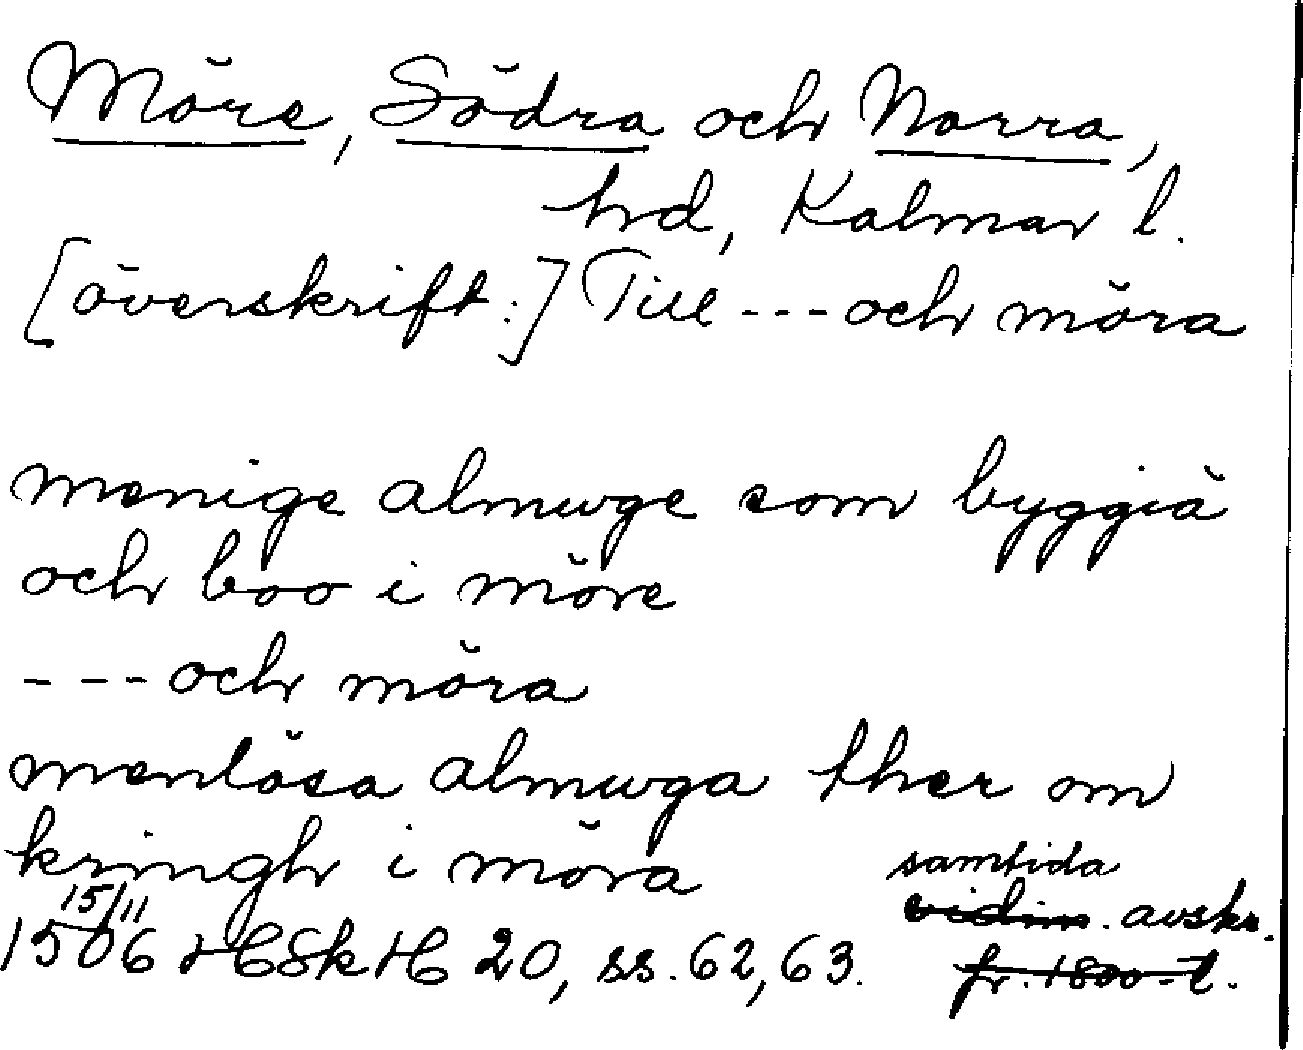 Möre, Södra och Norra,
hd, Kalmar l.
[överskrift:] Till --- och möra
menige almwge som byggiä
och boo i möre
--- och möra
menlösa almwga ther om
kringh i möra
samtida
15/11
vidim. avskr.
1506 HSkH 20, ss. 62, 63.
fr. 1800-t.